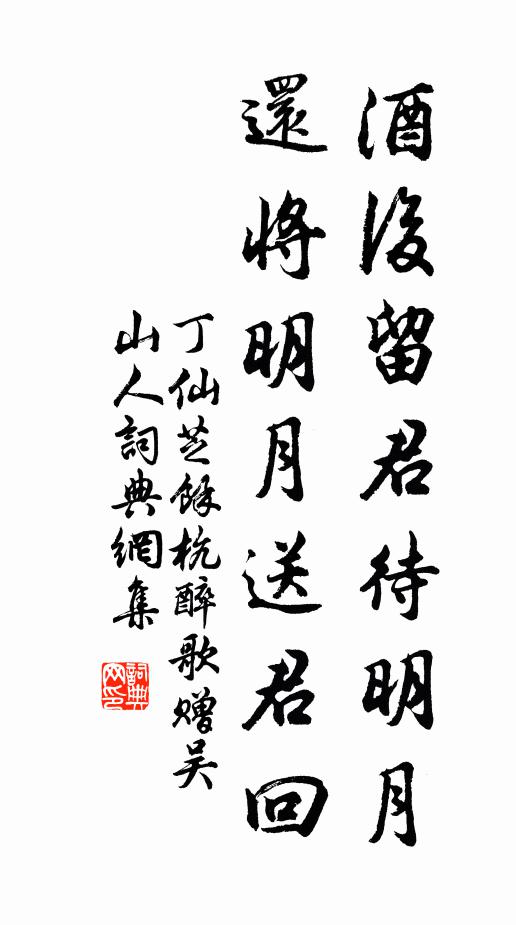 酒後留君待明月
還將明月送君回
丁仙芝餘杭醉歌贈吴
山人詞典網集
詞典
网印